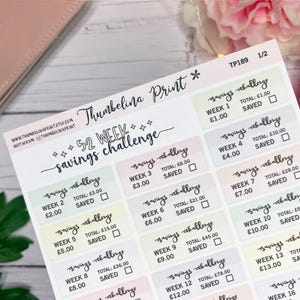 Thumbelina Print
TP189 1/2
WWW.THUMBELINAPRINT.ETSY.COM
INSTAGRAM @THUMBELINAPRINT
52 WEEK
savings challenge
savings challenge
WEEK 1 TOTAL: £1.00
£1.00 SAVED
savings challenge
WEEK 2 TOTAL: £3.00
£2.00 SAVED
savings challenge
WEEK 3 TOTAL: £6.00
£3.00 SAVED
savings challenge
WEEK 4 TOTAL: £10.00
£4.00 SAVED
savings challenge
WEEK 5 TOTAL: £15.00
£5.00 SAVED
savings challenge
WEEK 6 TOTAL: £21.00
£6.00 SAVED
savings challenge
WEEK 7 TOTAL: £28.00
£7.00 SAVED
savings challenge
WEEK 8 TOTAL: £36.00
SAVED
savings challenge
WEEK 9 TOTAL: £45.00
£9.00 SAVED
savings challenge
WEEK 10
£10.00 SAVED
savings challenge
WEEK 12 TOTAL: £78.00
£12.00 SAVED
savings challenge
WEEK 13
£13.00
savings challenge
WEEK 15
savings challenge
WEEK 16